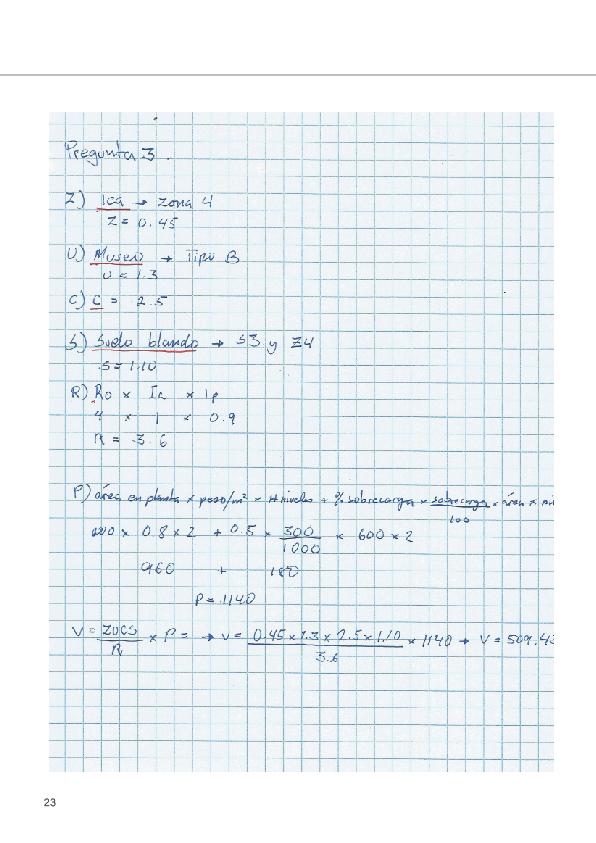 Pregunta 3.
Z) Ica → zona 4
Z = 0.45
U) Museo → Tipo B
U = 1.3
C) C = 2.5
S) Suelo blando → S3 y Z4
S = 1.10
R) Ro × Ia × Ip
4 × 1 × 0.9
R = 3.6
P) área en planta × peso/m² × # niveles + % sobrecarga × sobrecarga × área ×
100
× 0.8 × 2 + 0.5 × 300 × 600 × 2
1000
960 + 180
P = 1140
V = ZUCS × P = → V = 0.45 × 1.3 × 2.5 × 1.10 × 1140 → V = 509.43
R 3.6
23